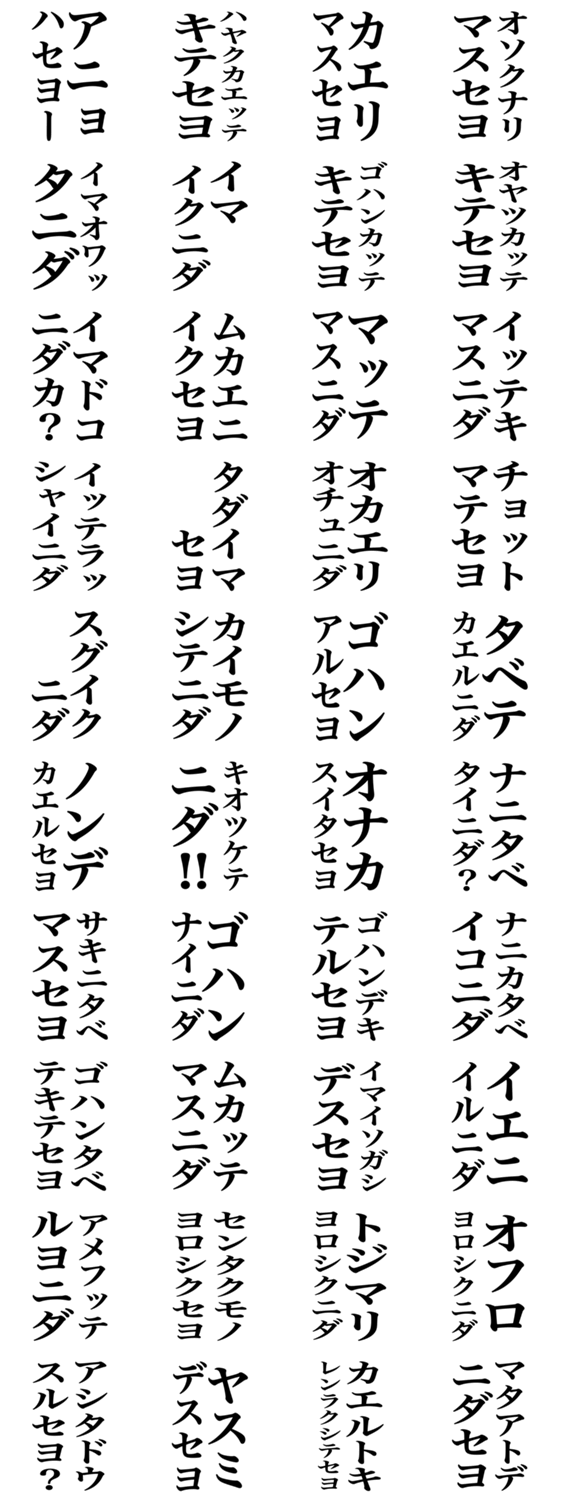 アニョ
ハセヨー
ハヤクカエッテ
キテセヨ
カエリ
マスセヨ
オソクナリ
マスセヨ
イマオワッ
タニダ
イマ
イクニダ
ゴハンカッテ
キテセヨ
オヤツカッテ
キテセヨ
イマドコ
ニダカ？
ムカエニ
イクセヨ
マッテ
マスニダ
イッテキ
マスニダ
イッテラッ
シャイニダ
タダイマ
セヨ
オカエリ
オチュニダ
チョット
マテセヨ
スグイク
ニダ
カイモノ
シテニダ
ゴハン
アルセヨ
タベテ
カエルニダ
ノンデ
カエルセヨ
キオツケテ
ニダ!!
オナカ
スイタセヨ
ナニタベ
タイニダ？
サキニタベ
マスセヨ
ゴハン
ナイニダ
ゴハンデキ
テルセヨ
ナニカタベ
イコニダ
ゴハンタベ
テキテセヨ
ムカッテ
マスニダ
イマイソガシ
デスセヨ
イエニ
イルニダ
アメフッテ
ルヨニダ
センタクモノ
ヨロシクセヨ
トジマリ
ヨロシクニダ
オフロ
ヨロシクニダ
アシタドウ
スルセヨ？
ヤスミ
デスセヨ
カエルトキ
レンラクシテセヨ
マタアトデ
ニダセヨ